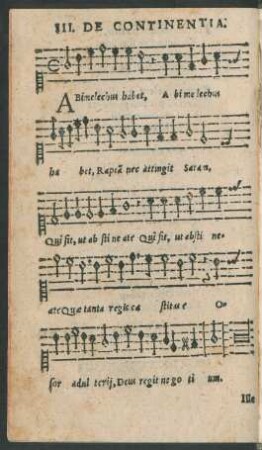 III. DE CONTINENTIA.
ABimelechus habet, A bi me lechus
ha bet, Raptã nec attingit Saram,
Qui fit, ut ab sti ne ate Qui fit, ut absti ne-
ate Quæ tanta regis ca stitas e O-
sor adul terij, Deus regit ne go ti um.
Ille